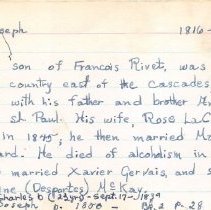 oseph 1816-
son of Francois Rivet, was
country east of the Cascades
with his father and brother
St. Paul. His wife, Rose LaC
in 1845; he then married
ard. He died of alcoholism in
married Xavier Gervais, and s
ne (Despartes) McKay.